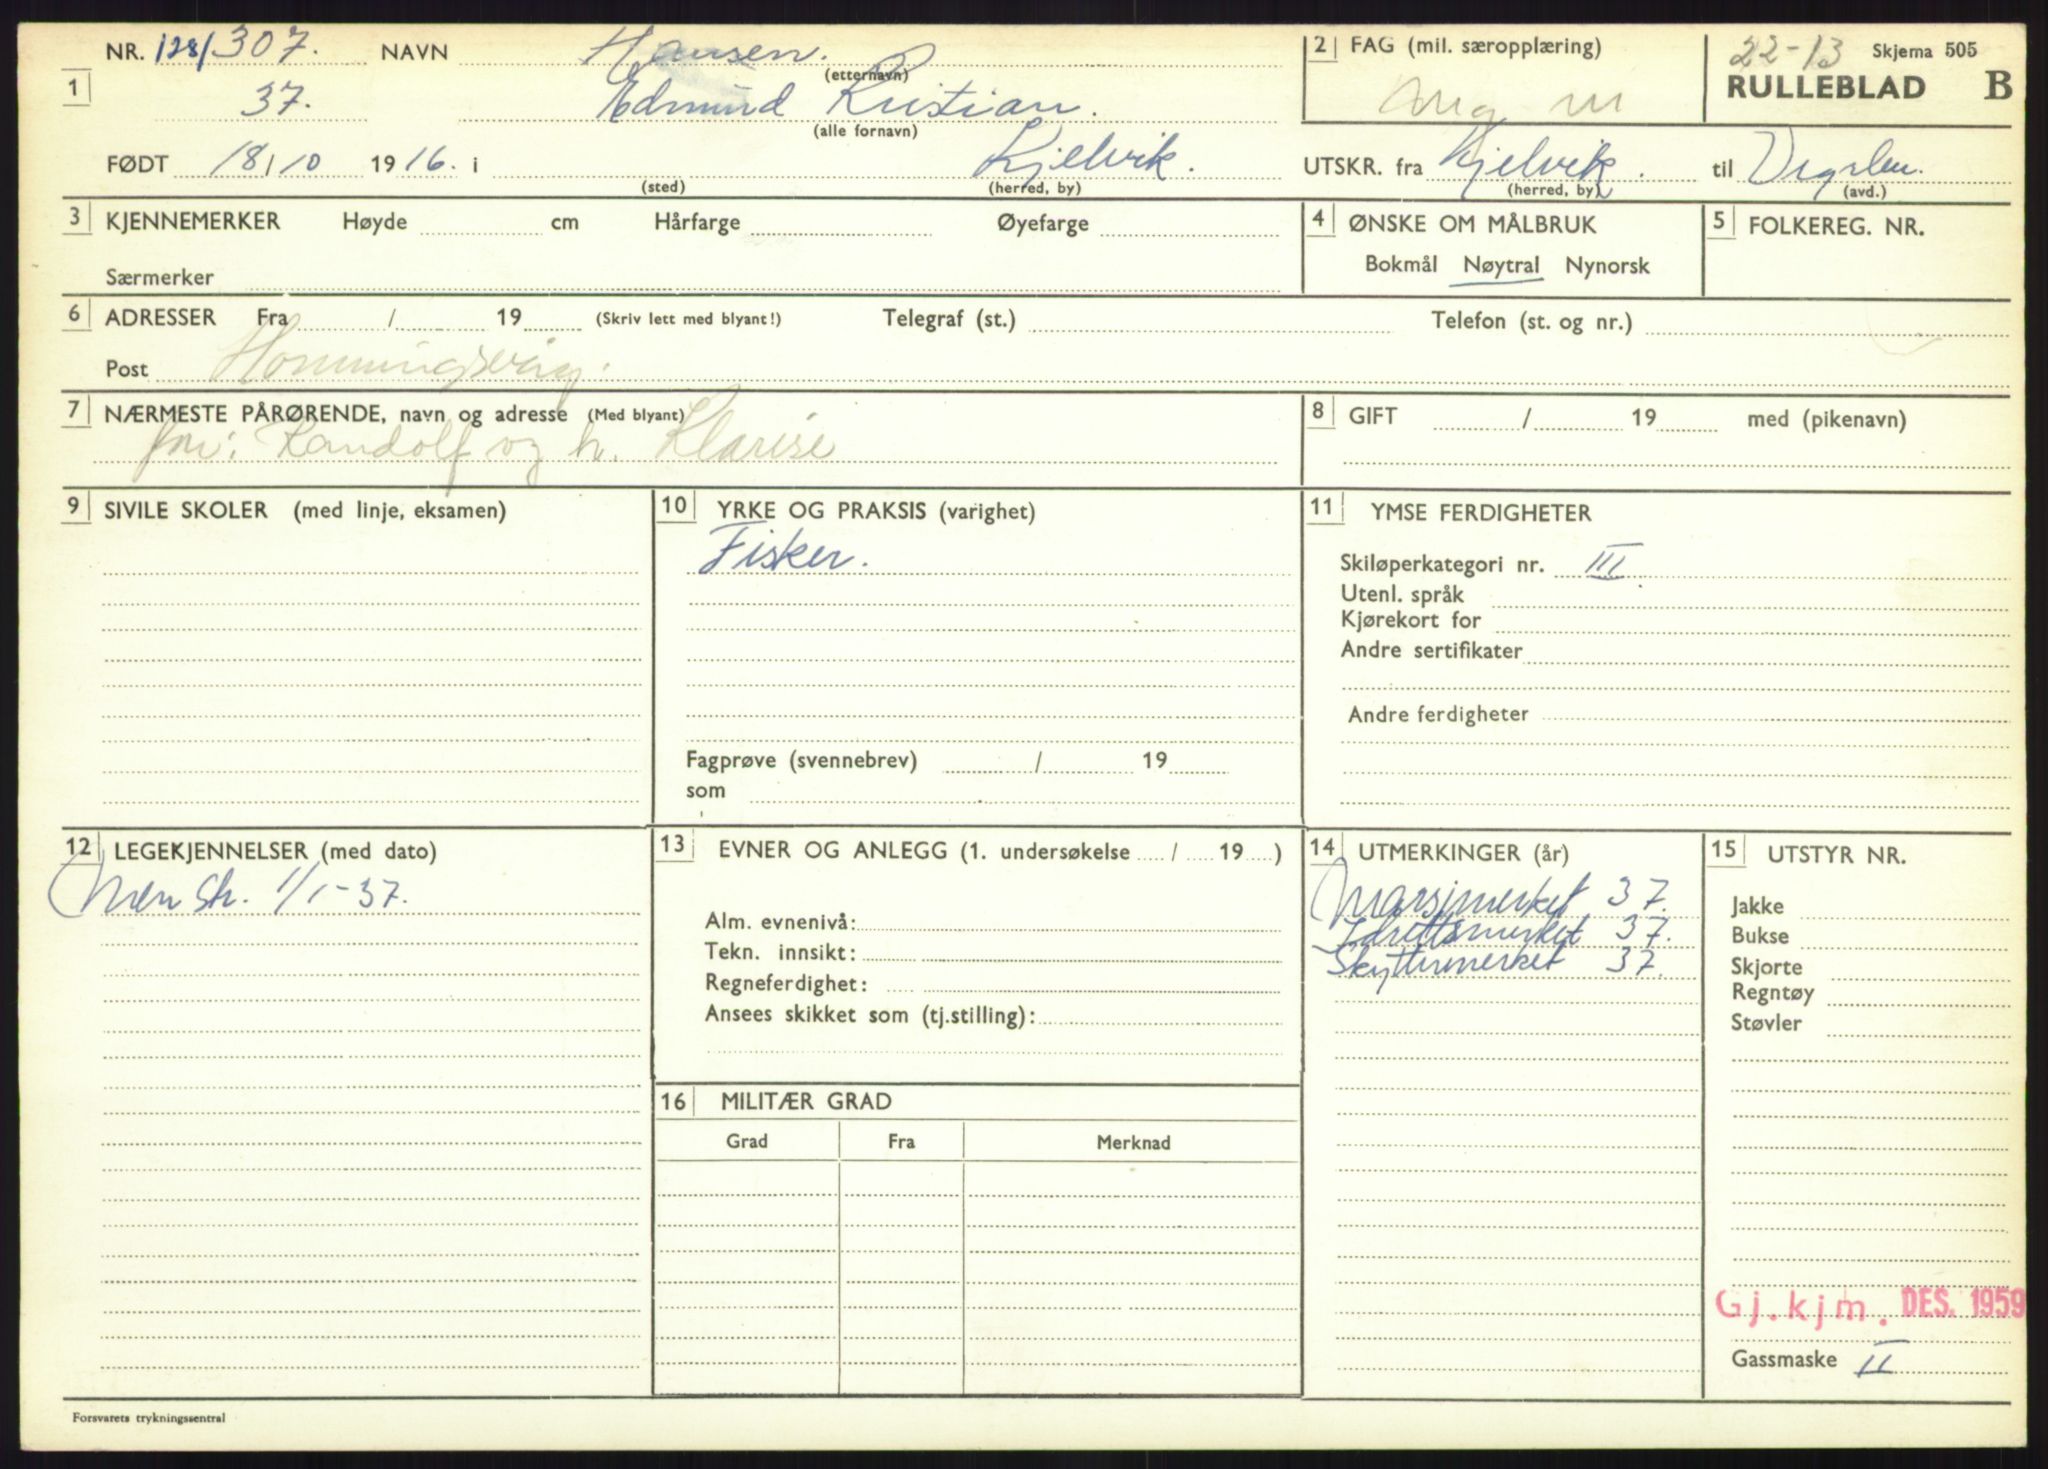 NR. 128/307. NAVN Hansen. 2 FAG (mil. særopplæring) 22-13 Skjema 505
(etternavn)
1 37. Edmund Kristian. RULLEBLAD B
(alle fornavn)
FØDT 18/10 1916. i Kjelvik. UTSKR. fra Kjelvik. til
(sted) (herred, by) (herred, by) (avd.)
3 KJENNEMERKER Høyde cm Hårfarge Øyefarge 4 ØNSKE OM MÅLBRUK 5 FOLKEREG. NR.
Særmerker Bokmål Nøytral Nynorsk
6 ADRESSER Fra / 19 (Skriv lett med blyant!) Telegraf (st.) Telefon (st. og nr.)
Post Honningsvåg.
7 NÆRMESTE PÅRØRENDE, navn og adresse (Med blyant) 8 GIFT / 19 med (pikenavn)
for: Randolf og h. Klarise
9 SIVILE SKOLER (med linje, eksamen) 10 YRKE OG PRAKSIS (varighet) 11 YMSE FERDIGHETER
Fisker.
Skiløperkategori nr. III
Utenl. språk
Kjørekort for
Andre sertifikater
Andre ferdigheter
Fagprøve (svennebrev) / 19
som
12 LEGEKJENNELSER (med dato) 13 EVNER OG ANLEGG (1. undersøkelse / 19 ) 14 UTMERKINGER (år) 15 UTSTYR NR.
1/1-37. Marsjmerket 37. Jakke
Alm. evnenivå: Idrettsmerket 37. Bukse
Tekn. innsikt: Skyttermerket 37. Skjorte
Regneferdighet: Regntøy
Ansees skikket som (tj.stilling): Støvler
16 MILITÆR GRAD
Grad Fra Merknad
Gj.kjm. DES. 1959
Gassmaske II
Forsvarets trykningssentral